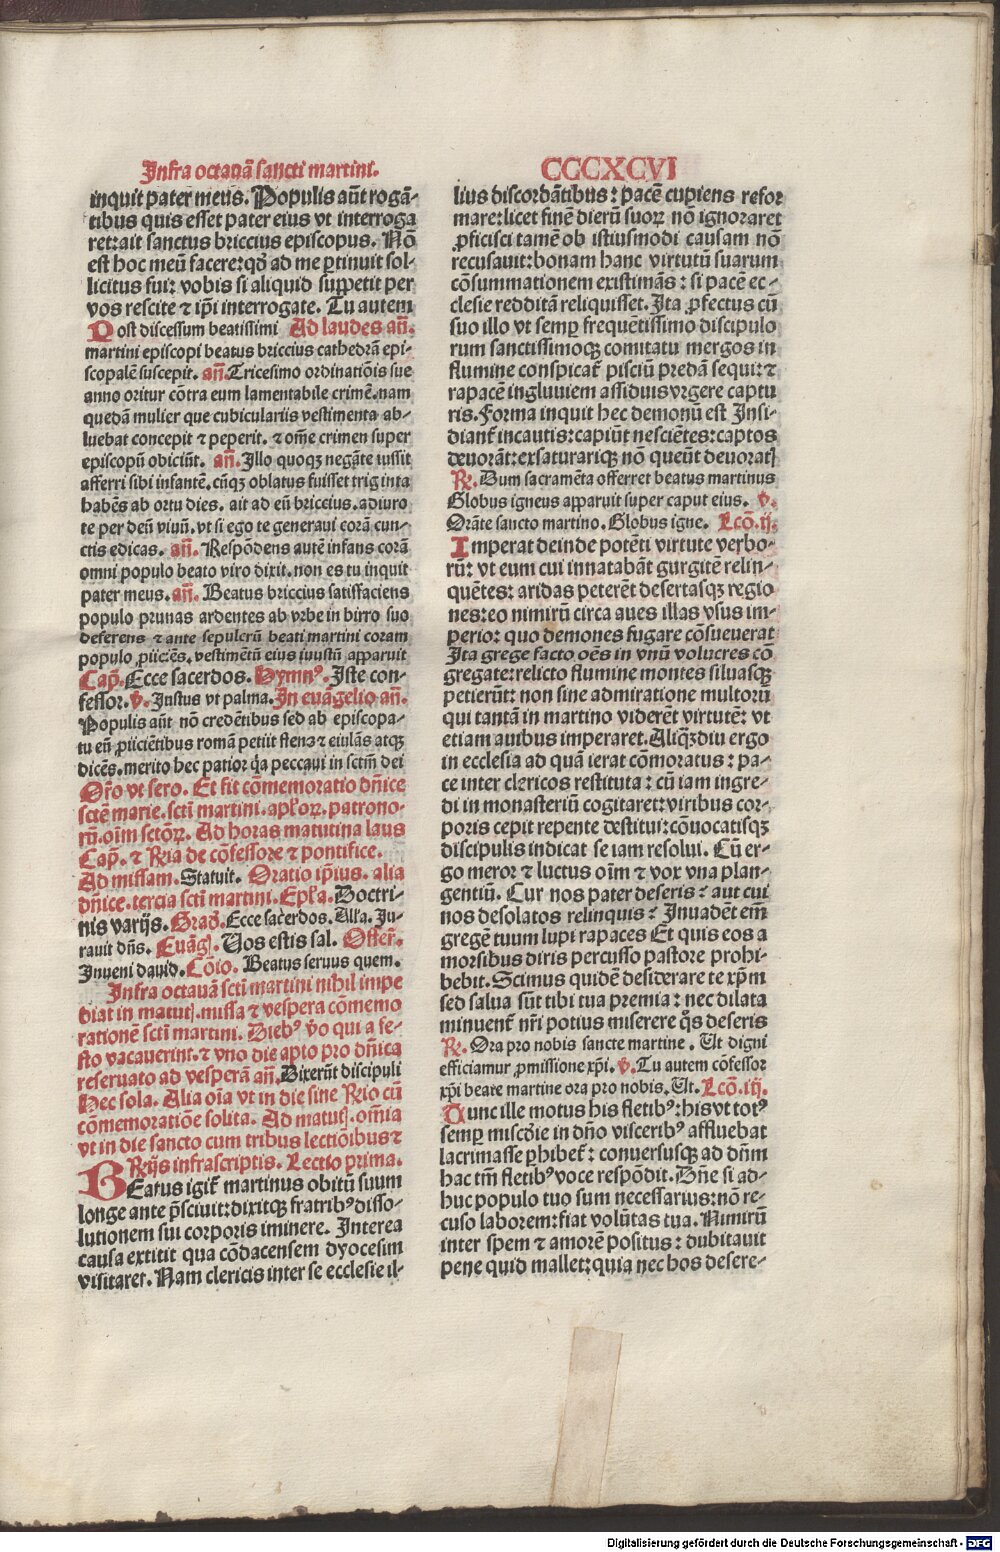 Infra octauā sancti martini.
inquit pater meus. Populis aūt rogā-
tibus quis esset pater eius vt interroga
ret: ait sanctus briccius episcopus. Nō
est hoc meū facere: qd̄ ad me ꝑtinuit sol-
licitus fui: vobis si aliquid suppetit per
vos rescite ⁊ ip̄i interrogate. Tu autem
Post discessum beatissimi Ad laudes añ.
martini episcopi beatus briccius cathedrā epi-
scopalē suscepit. añ. Tricesimo ordinatiōis sue
anno oritur cōtra eum lamentabile crimē. nam
quedā mulier que cubiculariis vestimenta ab-
luebat concepit ⁊ peperit. ⁊ om̄e crimen super
episcopū obiciūt. añ. Illo quoqꝫ negāte iussit
afferri sibi infantē. cūqꝫ oblatus fuisset triginta
habēs ab ortu dies. ait ad eū briccius. adiuro
te per deū viuū. vt si ego te generaui corā cun-
ctis edicas. añ. Respōdens autē infans corā
omni populo beato viro dixit. non es tu inquit
pater meus. añ. Beatus briccius satisfaciens
populo prunas ardentes ab vrbe in birro suo
deferens ⁊ ante sepulcrū beati martini coram
populo ꝓiiciēs. vestimētū eius inustū apparuit
Cap̄. Ecce sacerdos. Hymnꝰ. Iste con-
fessor. v̄. Iustus vt palma. In euāgelio añ.
Populis aūt nō credētibus sed ab episcopa-
tu eū ꝓiiciētibus romā petiit flens ⁊ eiulās atqꝫ
dicēs. merito hec patior q̄a peccaui in sctm̄ dei
Or̄o vt sero. Et fit cōmemoratio dn̄ice
sctē marie. scti martini. apl̄oꝝ. patrono-
rū. oīm sctōꝝ. Ad horas matutina laus
Cap̄. ⁊ R̄ia de cōfessore ⁊ pontifice.
Ad missam. Statuit. Oratio ip̄ius. alia
dn̄ice. tercia scti martini. Epl̄a. Doctri-
nis varijs. Grad̄. Ecce sacerdos. All̄a. Iu-
rauit dn̄s. Euāgl̄. Vos estis sal. Offer̄.
Inueni dauid. Cōio. Beatus seruus quem.
Infra octauā scti martini nihil impe
diat in matuꝭ. missa ⁊ vespera cōmemo
rationē scti martini. Diebꝰ v̄o qui a fe-
sto vacauerint. ⁊ vno die apto pro dn̄ica
reseruato ad vesperā añ. Dixerūt discipuli
Hec sola. Alia oīa vt in die sine R̄io cū
cōmemoratiōe solita. Ad matuꝭ. om̄ia
vt in die sancto cum tribus lectiōibus ⁊
R̄ijs infrascriptis. Lectio prima.
BEatus igit̄ martinus obitū suum
longe ante p̄sciuit: dixitqꝫ fratribꝰ disso-
lutionem sui corporis iminere. Interea
causa extitit qua cōdacensem dyocesim
visitaret. Nam clericis inter se ecclesie il-
CCCXCVI
lius discordātibus: pacē cupiens refor
mare: licet finē dierū suoꝝ nō ignoraret
ꝓficisci tamē ob istiusmodi causam nō
recusauit: bonam hanc virtutū suarum
cōsummationem existimās: si pacē ec-
clesie redditā reliquisset. Ita ꝓfectus cū
suo illo vt semꝑ frequētissimo discipulo
rum sanctissimoqꝫ comitatu mergos in
flumine conspicat̄ pisciū predā sequi: ⁊
rapacē ingluuiem assiduis vrgere captu
ris. Forma inquit hec demonū est Insi-
diant̄ incautis: capiūt nesciētes: captos
deuorāt: exsaturariqꝫ nō queūt deuoratꝭ
R̄. Dum sacramēta offerret beatus martinus
Globus igneus apparuit super caput eius. v̄.
Orāte sancto martino. Globus igne. Lcō. ij.
Imperat deinde potēti virtute verbo-
rū: vt eum cui innatabāt gurgitē relin-
quētes: aridas peterēt desertasqꝫ regio
nes: eo nimirū circa aues illas vsus im-
perio: quo demones fugare cōsueuerat
Ita grege facto oēs in vnū volucres cō
gregate: relicto flumine montes siluasqꝫ
petierūt: non sine admiratione multorū
qui tantā in martino viderēt virtutē: vt
etiam auibus imperaret. Aliqꝫdiu ergo
in ecclesia ad quā ierat cōmoratus: pa-
ce inter clericos restituta: cū iam ingre-
di in monasteriū cogitaret: viribus cor-
poris cepit repente destitui: cōuocatisqꝫ
discipulis indicat se iam resolui. Cū er-
go meror ⁊ luctus oīm ⁊ vox vna plan-
gentiū. Cur nos pater deseris? aut cui
nos desolatos relinquis? Inuadēt em̄
gregē tuum lupi rapaces Et quis eos a
morsibus diris percusso pastore prohi-
bebit. Scimus quidē desiderare te xp̄m
sed salua sūt tibi tua premia: nec dilata
minuent̄ nr̄i potius miserere q̄s deseris
R̄. Ora pro nobis sancte martine. Ut digni
efficiamur ꝓmissione xp̄i. v̄. Tu autem cōfessor
xp̄i beate martine ora pro nobis. Ut. Lcō. iij.
Tunc ille motus his fletibꝰ: his vt totꝰ
semꝑ misc̄die in dn̄o visceribꝰ affluebat
lacrimasse ꝑhibet̄: conuersusqꝫ ad dn̄m
hac tm̄ fletibꝰ voce respōdit. Dn̄e si ad-
huc populo tuo sum necessarius: nō re-
cuso laborem: fiat volūtas tua. Nimirū
inter spem ⁊ amorē positus: dubitauit
pene quid mallet: quia nec hos desere-
Digitalisierung gefördert durch die Deutsche Forschungsgemeinschaft - DFG